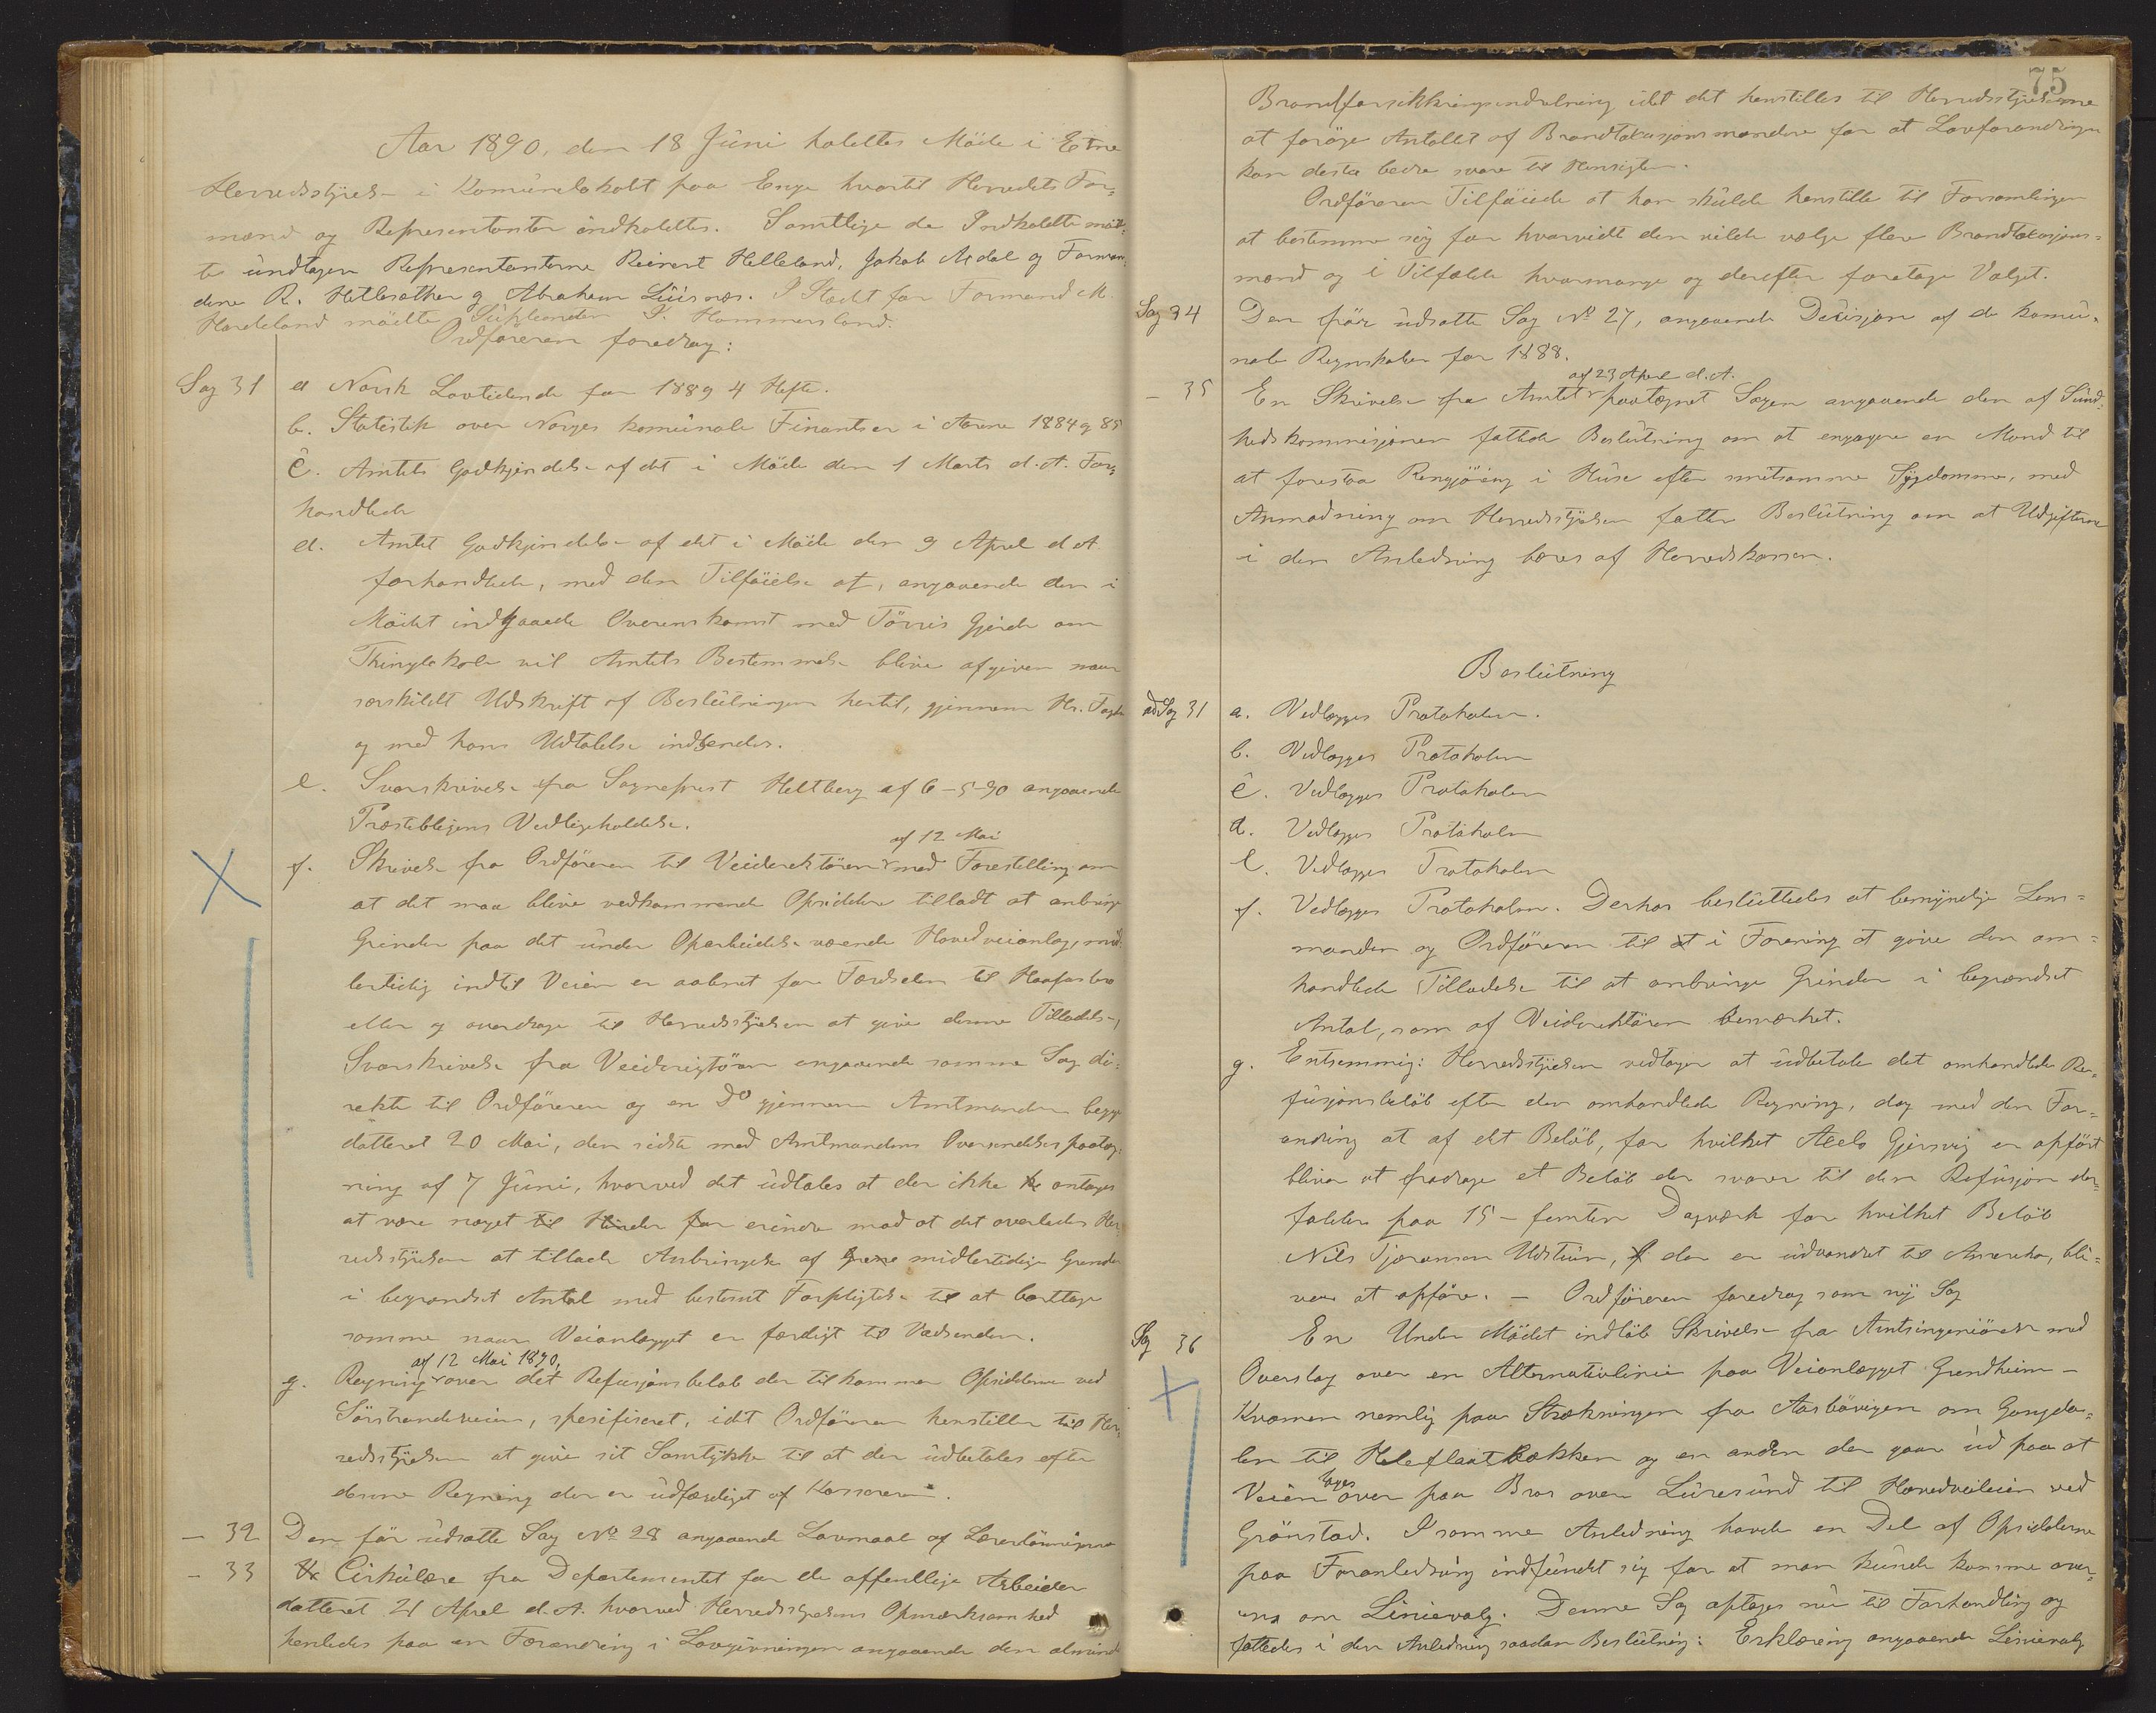 Aar 1890, den 18 Juni holdtes Möde i Etne
Herredsstyrelse i Komunelokalt paa Enge hvortil Herredets For-
mænd og Representanter indkaldtes. Samtlige de Indkaldte möd-
te undtagen Representanterne Reinert Helleland, Jakob Ardal og Forman-
dene R. Hetlesæther og Abraham Luisnes. I Stædet for Formand M.
Hardeland mödte Supleanten I. Hammersland.
Ordföreren foredrog:
Sag 31 a Norsk Lovtidende for 1889 4 Hefte.
b. Statistik over Norges komunale Finantser i Aarene 1884 og 85
c. Amtets Godkjendelse af det i Möde den 1 Marts d.A. For-
handlede
d. Amtet Godkjendelse af det i Möde den 9 April d A
forhandlede, med den Tilföielse at, angaaende den i
Mödet indgaaede Overenskomst med Törris Gjerde om
Thinglokale vil Amtets Bestemmelse blive afgiven naar
særskildt Udskrift af Beslutningen hertil, gjennem Hr. Fogden
og med hans Udtalelse indsendes.
e. Svarskrivelse fra Sogneprest Heltberg af 6-5-90 angaaende
Præsteboligens Vedligeholdelse.
af 12 Mai
f. Skrivelse fra Ordföreren til Veidirektören med Forestilling om
at det maa blive vedkommende Opsiddere tilladt at anbringe
Grinder paa det under Oparbeidelse værende Hovedveianlæg, mid-
lertidig indtil Veien er aabnet for Færdselen til Haafasbro
eller og overdrage til Herredsstyrelsen at give denne Tilladelse,
Svarskrivelse fra Veidirigtören angaaende samme Sag di-
rekte til Ordföreren og en Do gjennem Amtmanden begge
datteret 20 Mai, den sidste med Amtmandens Oversendelsespaateg-
ning af 7 Juni, hvorved det udtales at der ikke antages
at være noget til Hinder for erindre mod at det overlades Her-
redsstyrelsen at tillade Anbringelse af midlertidige Grinder
i begrændset Antal med bestemt Forpligtelse til at borttage
samme naar Veianlægget er færdigt til Vadsenden.
af 12 Mai 1890,
g. Regning over det Refusjonsbelöb der tilkommer Opsidderne ved
Sörstrandsveien, spesifiseret, idet Ordföreren henstiller til Her-
redsstyrelsen at give sit Samtykke til at der udbetales efter
denne Regning der er udfærdiget af Kassereren.
- 32 Den för udsatte Sag No 28 angaaende Lovmaal af Lærerlönningerne
- 33 Cirkulære fra Departementet for de offentlige Arbeider
datteret 21 April d.A. hvorved Herredsstyrelsens Opmærksomhed
henledes paa en Forandring i Lovgivningen angaaende den almind
75
Brandforsikkringsindretning idet det henstilles til Herredsstyrelserne
at foröge Antallet af Brandtaksasjonsmændene for at Lovforandringen
kan desto bedre svare til Hensigten.
Ordföreren Tilföiede at han skulde henstille til Forsamlingen
at bestemme sig for hvorvidt den vilde vælge flere Brandtaksasjons-
mænd og i Tilfælde hvormange og derefter foretage Valget.
Sag 34 Den för udsatte Sag No 27, angaaende Desisjon af de komu-
nale Regnskaber for 1888.
af 23 April d.A.
- 35 En Skrivelse fra Amtet paategnet Sagen angaaende den af Sund-
hedskommisjonen fattede Beslutning om at engagere en Mand til
at forestaa Rengjöring i Huse efter smitsomme Sygdomme, med
Anmodning om Herredsstyrelsen fatter Beslutning om at Udgifterne
i den Anledning bæres af Herredskassen.
Beslutning
ad Sag 31 a. Vedlægges Protokolen.
b. Vedlægges Protokolen
c. Vedlægges Protokolen
d. Vedlægges Protokolen
e. Vedlægges Protokolen
f. Vedlægges Protokolen. Derhos besluttedes at bemyndige Lens-
manden og Ordföreren til at i Forening at give den om-
handlede Tilladelse til at anbringe Grinder i begrændset
Antal, som af Veidirektören bemærket.
g. Enstemmig: Herredsstyrelsen vedtager at udbetale det omhandlede Re-
fusjonsbelöb efter den omhandlede Regning, dog med den For-
andring at af det Belöb, for hvilket Aeels Gjersvig er opfört
bliver at fradrage et Belöb der svarer til den Refusjon der
falder paa 15 - femten Dagværk for hvilket Belöb
Nils Tjæransen Udstuen, der er udvandret til Amerika, bli-
ver at opföre. - Ordföreren foredrog som ny Sag
Sag 36 En Under Mödet indlöb Skrivelse fra Amtsingeniören med
Overslag over en Alternativlinie paa Veianlægget Grindheim -
Kvamen nemlig paa Strækningen fra Aasbövegen om Gongda-
len til Heleflaatbækken og en anden der gaar ud paa at
Veien tages over paa Bro over Luresund til Hovedveilinien ved
Grönstad. I samme Anledning havde en Del af Opsidderne
paa Foranledning indfundet sig for at man kunde komme over-
ens om Linievalg. Denne Sag optages nu til Forhandling og
fattedes i den Anledning saadan Beslutning: Erklæring angaaende Linievalg